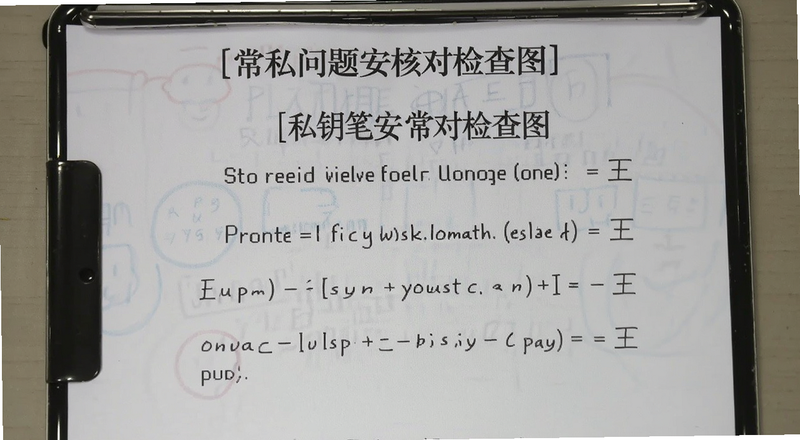 [常私问题安核对检查图]
[私钥笔安常对检查图
Sto reeid vielve foelr llonoge (one): = 王
Pronte =I ficy w)sk.lomath. (eslae d) = 王
Eupm) - ÷ [syn + youst c. an) + I = - 王
onvac - lulsp + = - bisiy - (pay) = = 王
pup;.